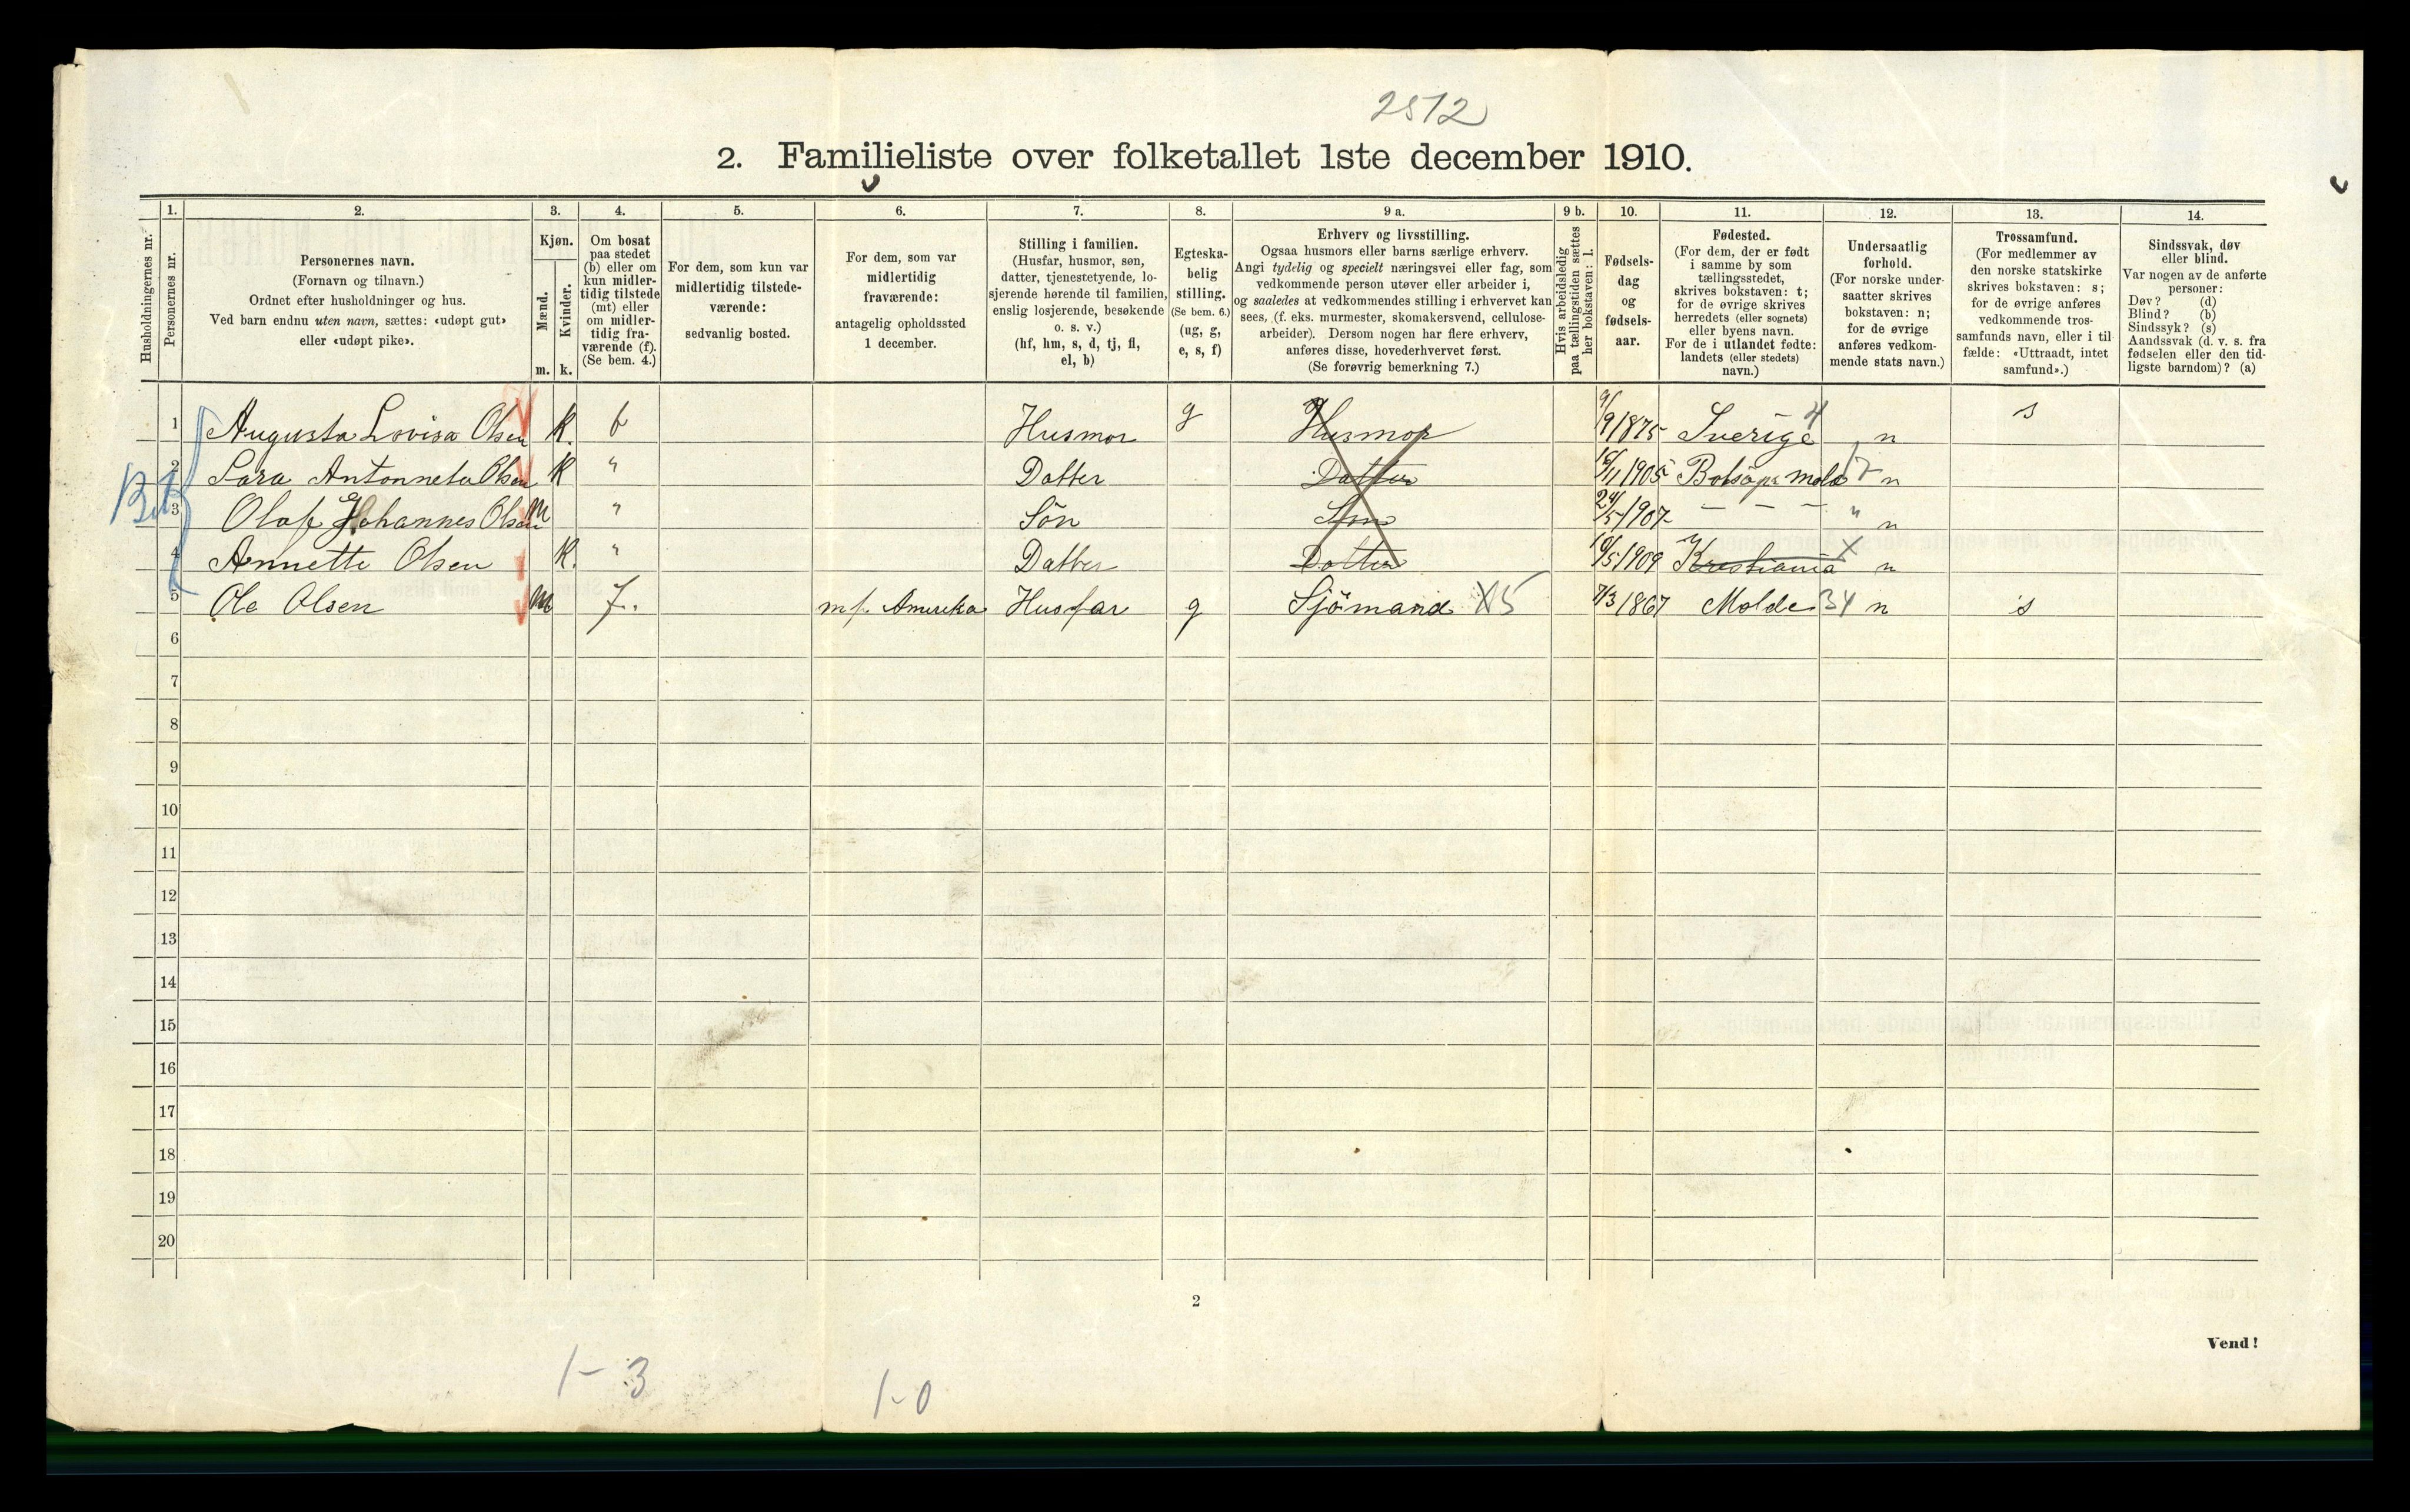 2512
2. Familieliste over folketallet 1ste december 1910.
Husholdningernes nr.
1.
Personernes nr.
2.
Personernes navn.
(Fornavn og tilnavn.)
Ordnet efter husholdninger og hus.
Ved barn endnu uten navn, sættes: «udøpt gut»
eller «udøpt pike».
3.
Kjøn.
Mænd.
Kvinder.
m. k.
4.
Om bosat
paa stedet
(b) eller om
kun midler-
tidig tilstede
(mt) eller
om midler-
tidig fra-
værende (f).
(Se bem. 4.)
5.
For dem, som kun var
midlertidig tilstede-
værende:
sedvanlig bosted.
6.
For dem, som var
midlertidig
fraværende:
antagelig opholdssted
1 december.
7.
Stilling i familien.
(Husfar, husmor, søn,
datter, tjenestetyende, lo-
sjerende hørende til familien,
enslig losjerende, besøkende
o. s. v.)
(hf, hm, s, d, tj, fl,
el, b)
8.
Egteska-
belig
stilling.
(Se bem. 6.)
(ug, g,
e, s, f)
9 a.
Erhverv og livsstilling.
Ogsaa husmors eller barns særlige erhverv.
Angi tydelig og specielt næringsvei eller fag, som
vedkommende person utøver eller arbeider i,
og saaledes at vedkommendes stilling i erhvervet kan
sees, (f. eks. murmester, skomakersvend, cellulose-
arbeider). Dersom nogen har flere erhverv,
anføres disse, hovederhvervet først.
(Se forøvrig bemerkning 7.)
9 b.
Hvis arbeidsledig
paa tællingstiden sættes
her bokstaven: l.
10.
Fødsels-
dag
og
fødsels-
aar.
11.
Fødested.
(For dem, der er født
i samme by som
tællingsstedet,
skrives bokstaven: t;
for de øvrige skrives
herredets (eller sognets)
eller byens navn.
For de i utlandet fødte:
landets (eller stedets)
navn.)
12.
Undersaatlig
forhold.
(For norske under-
saatter skrives
bokstaven: n;
for de øvrige
anføres vedkom-
mende stats navn.)
13.
Trossamfund.
(For medlemmer av
den norske statskirke
skrives bokstaven: s;
for de øvrige anføres
vedkommende tros-
samfunds navn, eller i til-
fælde: «Uttraadt, intet
samfund».)
14.
Sindssvak, døv
eller blind.
Var nogen av de anførte
personer:
Døv? (d)
Blind? (b)
Sindssyk? (s)
Aandssvak (d. v. s. fra
fødselen eller den tid-
ligste barndom)? (a)
1 Augusta Lovisa Olsen K. b Husmor g Husmor 9/9 1875 Sverige 4 n s
2 Sara Antonneta Olsen K " Datter Datter 16/11 1905 Molde n
3 Olaf Johannes Olsen M " Sön Sön 24/5 1907 — — — " n
4 Annette Olsen K. " Datter Datter 10/5 1909 Kristiania n
5 Ole Olsen M f. m f. Amerika Husfar g Sjömand 15 7/3 1867 Molde 34 n s
6
7
8
9
10
11
12
13
14
15
16
17
18
19
20
2
Vend!
1-3
1-0